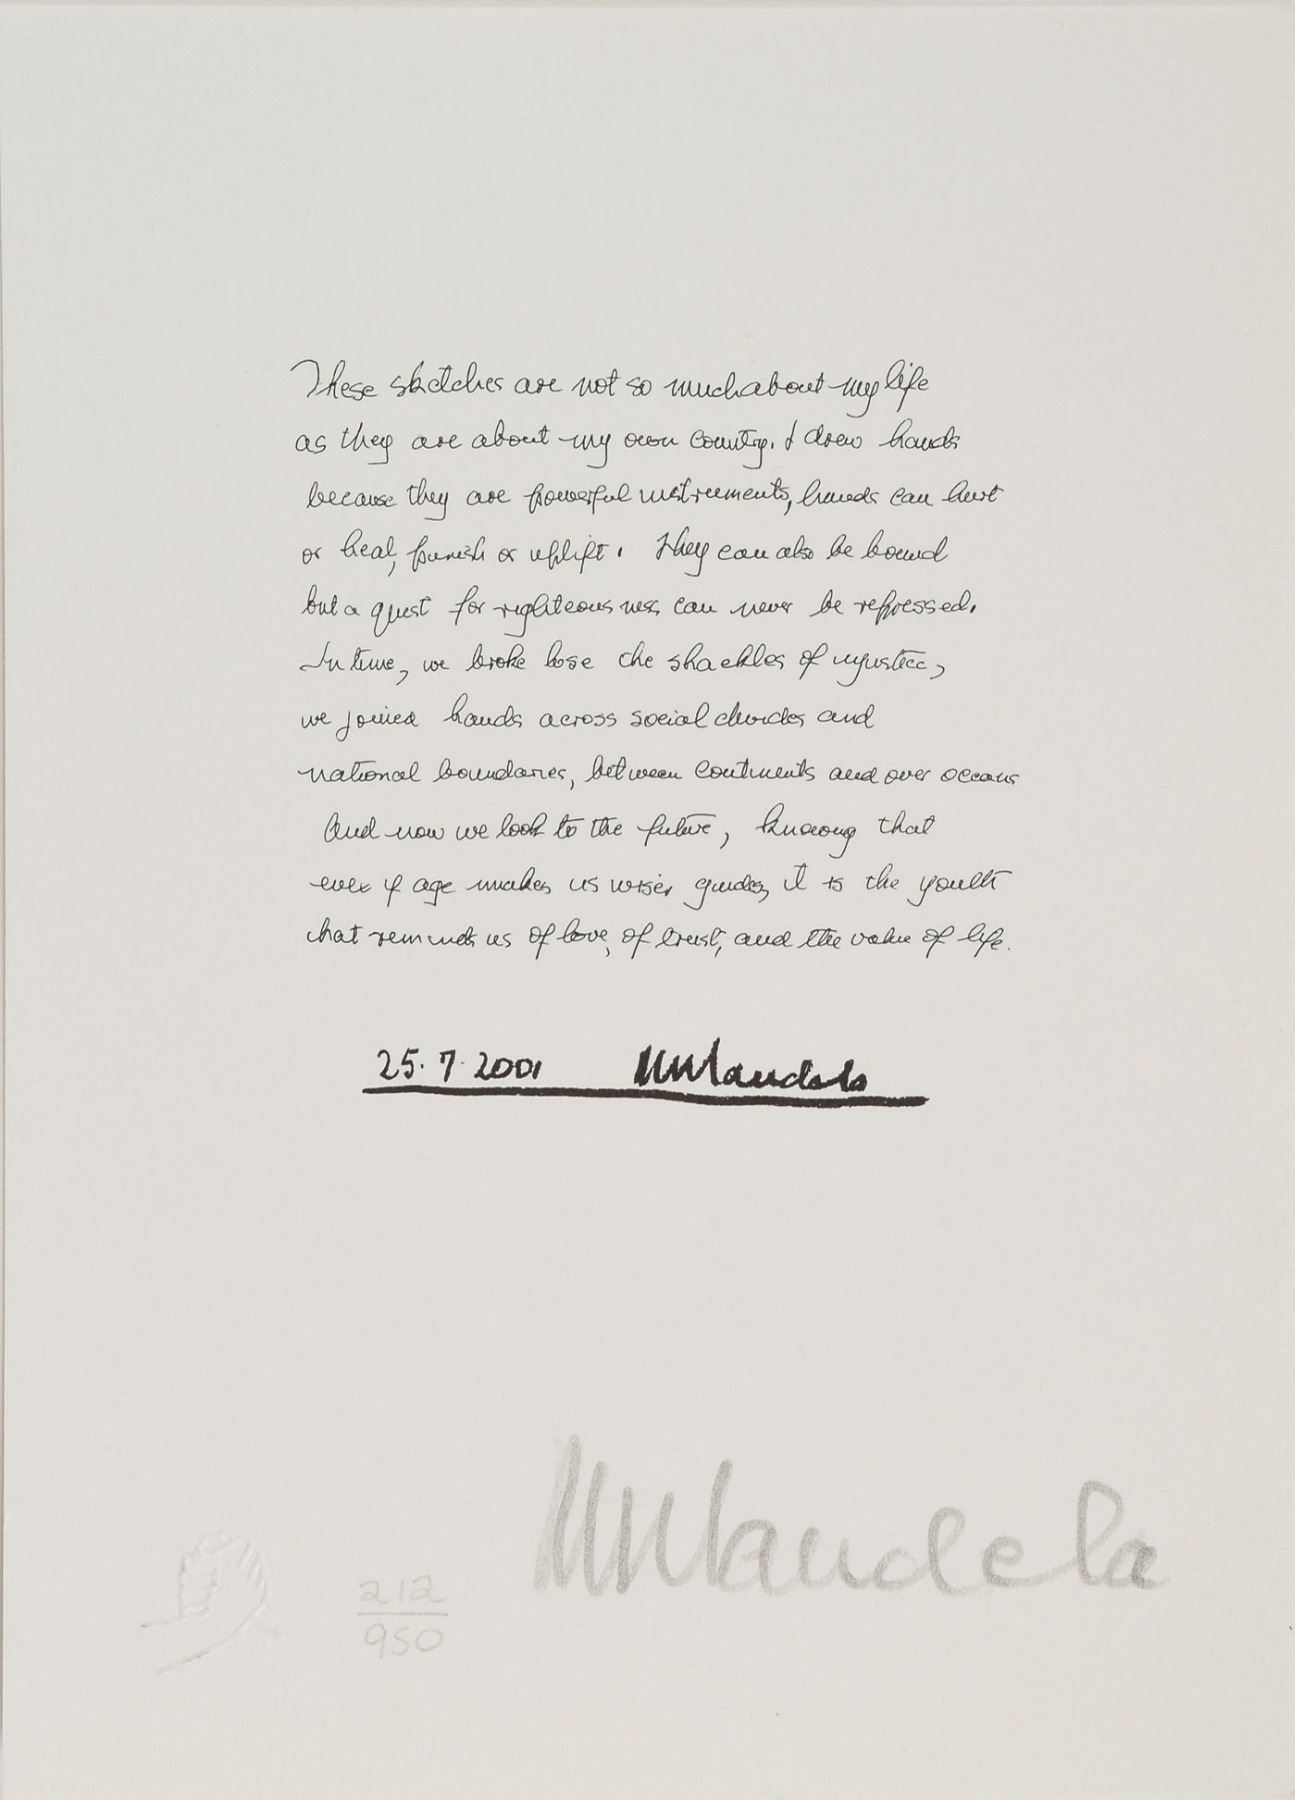 These sketches are not so much about my life
as they are about my own country. I drew hands
because they are powerful instruments, hands can hurt
or heal, punish or uplift. They can also be bound
but a quest for righteousness can never be repressed.
In time, we broke lose the shackles of injustice,
we joined hands across social divides and
national boundaries, between continents and over oceans
And now we look to the future, knowing that
even if age makes us wiser guides, it is the youth
that reminds us of love, of trust, and the value of life.
25.7.2001 Mandela
212
950
Mandela